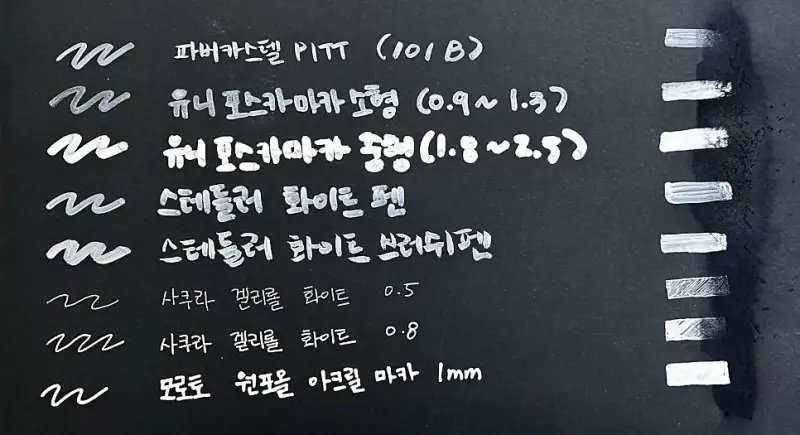 파버카스텔 PITT (101 B)
유니 포스카마카 소형 (0.9~1.3)
유니 포스카마카 중형 (1.8~2.5)
스테들러 화이트 펜
스테들러 화이트 브러쉬펜
사쿠라 겔리롤 화이트 0.5
사쿠라 겔리롤 화이트 0.8
모로토 원포올 아크릴 마카 1mm